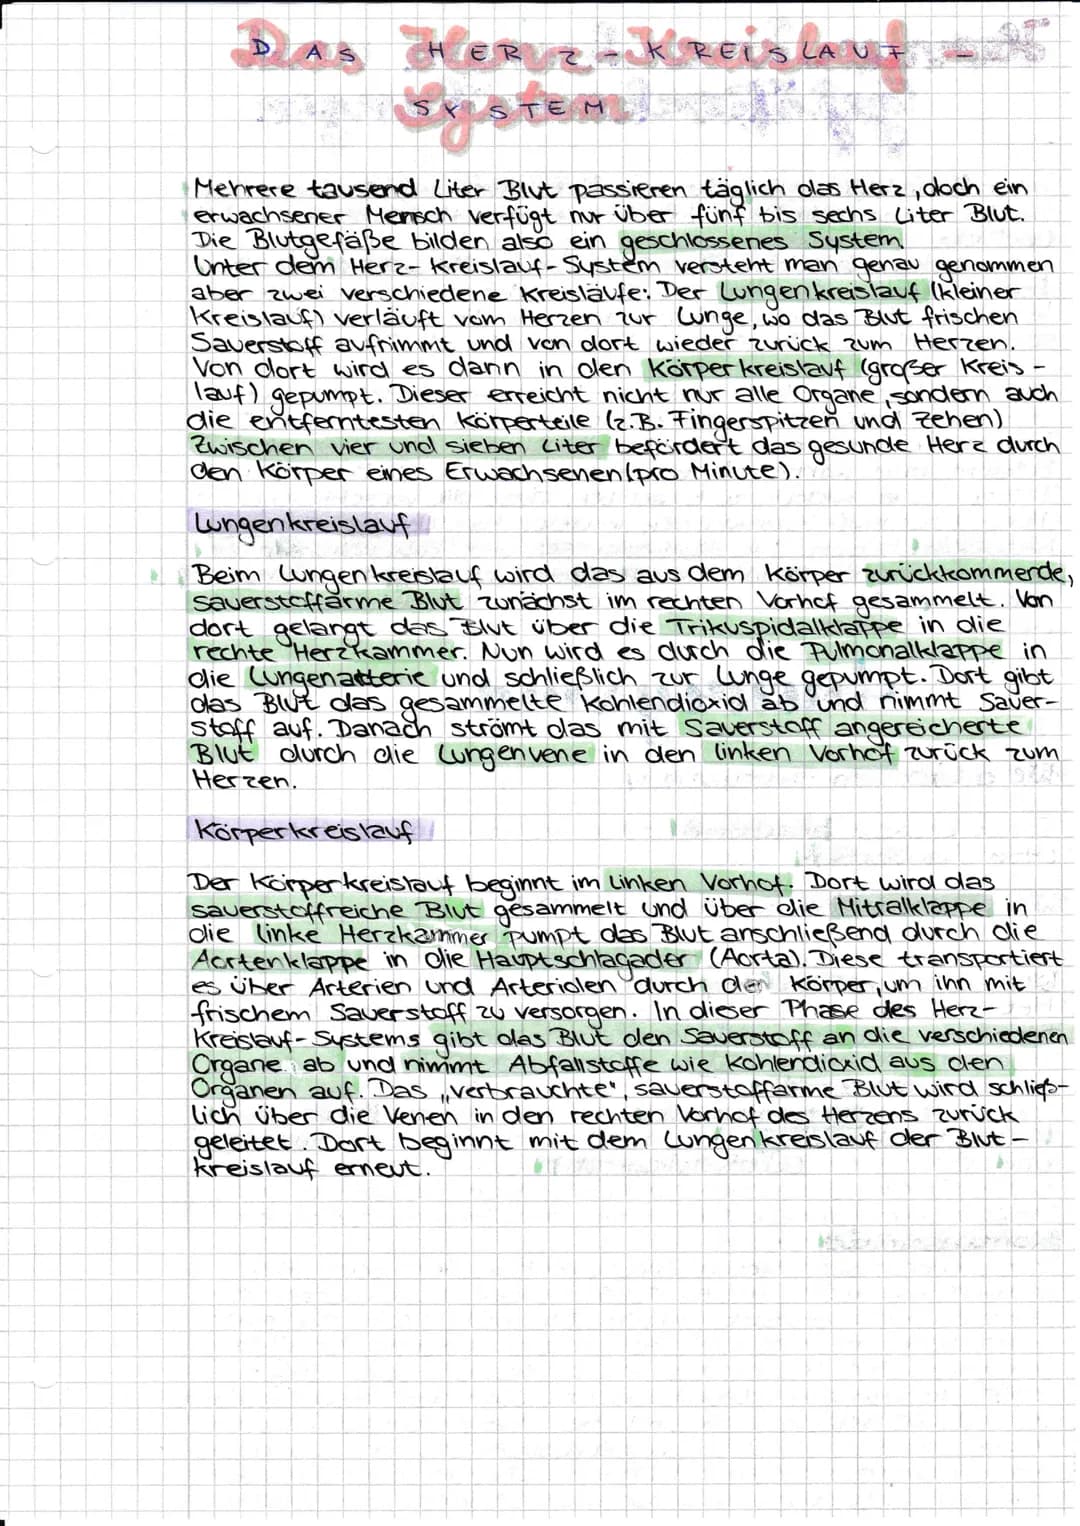 DAS HERZ-KREISLAUF-
SYSTEM
Mehrere tausend Liter Blut passieren täglich das Herz, doch ein
erwachsener Mensch verfügt nur über fünf bis sechs Liter Blut.
Die Blutgefäße bilden also ein geschlossenes System.
Unter dem Herz-Kreislauf-System versteht man genau genommen
aber zwei verschiedene Kreisläufe: Der Lungenkreislauf (kleiner
Kreislauf) verläuft vom Herzen zur Lunge, wo das Blut frischen
Sauerstoff aufnimmt und von dort wieder zurück zum Herzen.
Von dort wird es dann in den Körperkreislauf (großer Kreis-
lauf) gepumpt. Dieser erreicht nicht nur alle Organe, sondern auch
die entferntesten Körperteile (z.B. Fingerspitzen und Zehen)
Zwischen vier und sieben Liter befördert das gesunde Herz durch
den Körper eines Erwachsenen (pro Minute).
Lungenkreislauf
Beim Lungenkreislauf wird das aus dem Körper zurückkommende,
sauerstoffarme Blut zunächst im rechten Vorhof gesammelt. Von
dort gelangt das Blut über die Trikuspidalklappe in die
rechte Herzkammer. Nun wird es durch die Pulmonalklappe in
die Lungenatterie und schließlich zur Lunge gepumpt. Dort gibt
das Blut das gesammelte Kohlendioxid ab und nimmt Sauer-
stoff auf. Danach strömt das mit Sauerstoff angereicherte
Blut durch die Lungenvene in den linken Vorhof zurück zum
Herzen.
Körperkreislauf
Der Körperkreislauf beginnt im linken Vorhof. Dort wird das
sauerstoffreiche Blut gesammelt und über die Mitralklappe in
die linke Herzkammer pumpt das Blut anschließend durch die
Aortenklappe in die Hauptschlagader (Aorta). Diese transportiert
es über Arterien und Arteriolen durch den Körper, um ihn mit
frischem Sauerstoff zu versorgen. In dieser Phase des Herz-
Kreislauf-Systems gibt das Blut den Sauerstoff an die verschiedenen
Organe ab und nimmt Abfallstoffe wie Kohlendioxid aus den
Organen auf. Das „verbrauchte", sauerstoffarme Blut wird schließ-
lich über die Venen in den rechten Vorhof des Herzens zurück
geleitet. Dort beginnt mit dem Lungenkreislauf der Blut-
kreislauf erneut.